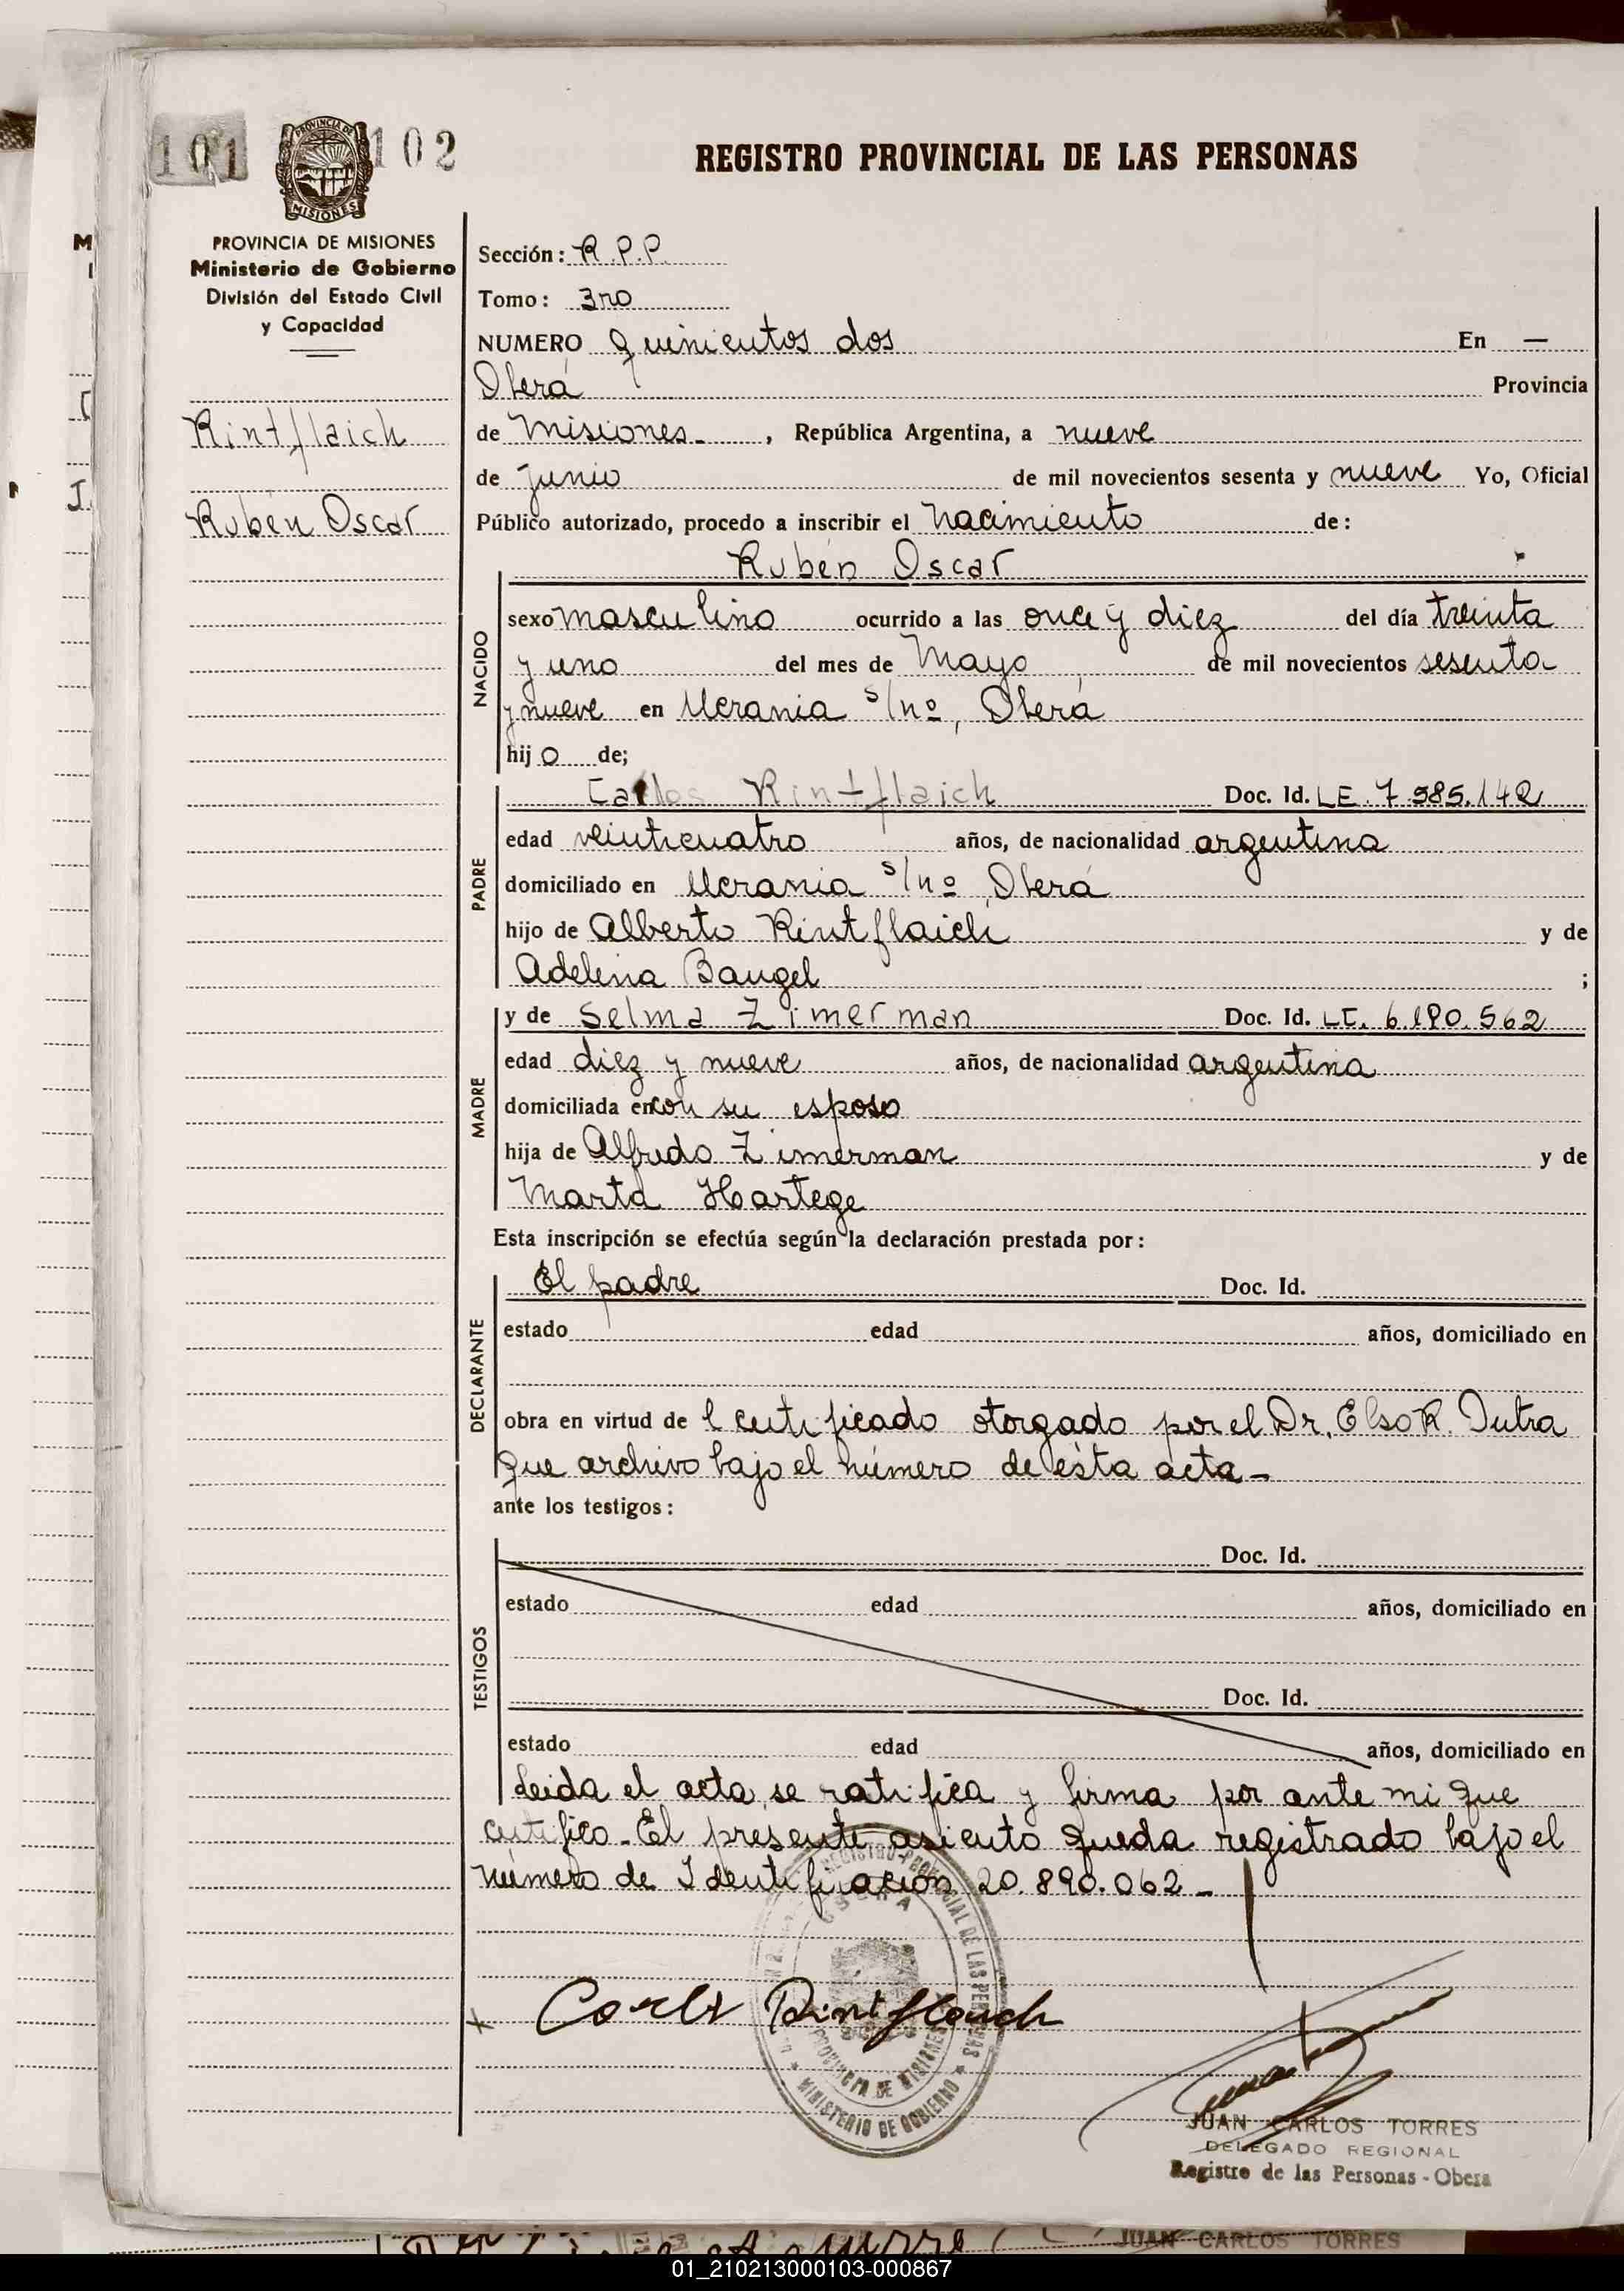 101 102
PROVINCIA DE MISIONES
REGISTRO PROVINCIAL DE LAS PERSONAS
PROVINCIA DE MISIONES
Ministerio de Gobierno
División del Estado Civil
y Capacidad
Rintflaich
Rubén Oscar
Sección: R.P.P.
Tomo: 3ro
NUMERO quinientos dos En —
Oberá Provincia
de Misiones - , República Argentina, a nueve
de junio de mil novecientos sesenta y nueve Yo, Oficial
Público autorizado, procedo a inscribir el nacimiento de:
Rubén Oscar
NACIDO
sexo masculino ocurrido a las once y diez del día treinta
y uno del mes de Mayo de mil novecientos sesenta
y nueve en Ucrania s/nº, Oberá
hijo de;
PADRE
Carlos Rintflaich Doc. Id. LE. 7.585.142
edad veinticuatro años, de nacionalidad argentina
domiciliado en Ucrania s/nº, Oberá
hijo de Alberto Rintflaich y de
Adelina Baugel ;
MADRE
y de Selma Zimerman Doc. Id. LC. 6.190.562
edad diez y nueve años, de nacionalidad argentina
domiciliada en con su esposo
hija de Alfredo Zimerman y de
Marta Hartege
Esta inscripción se efectúa según la declaración prestada por:
DECLARANTE
El padre Doc. Id.
estado edad años, domiciliado en
obra en virtud de l certificado otorgado por el Dr. Elso R. Dutra
que archivo bajo el número de ésta acta -
ante los testigos:
TESTIGOS
Doc. Id.
estado edad años, domiciliado en
Doc. Id.
estado edad años, domiciliado en
Leida el acta, se ratifica y firma por ante mi que
certifico - El presente asiento queda registrado bajo el
número de Identificación 20.890.062 -
REGISTRO PROVINCIAL DE LAS PERSONAS
OBERA
PROVINCIA DE MISIONES
MINISTERIO DE GOBIERNO
x Carlos Rintflaich
JUAN CARLOS TORRES
DELEGADO REGIONAL
Registro de las Personas - Obera
JUAN CARLOS TORRES
01_210213000103-000867